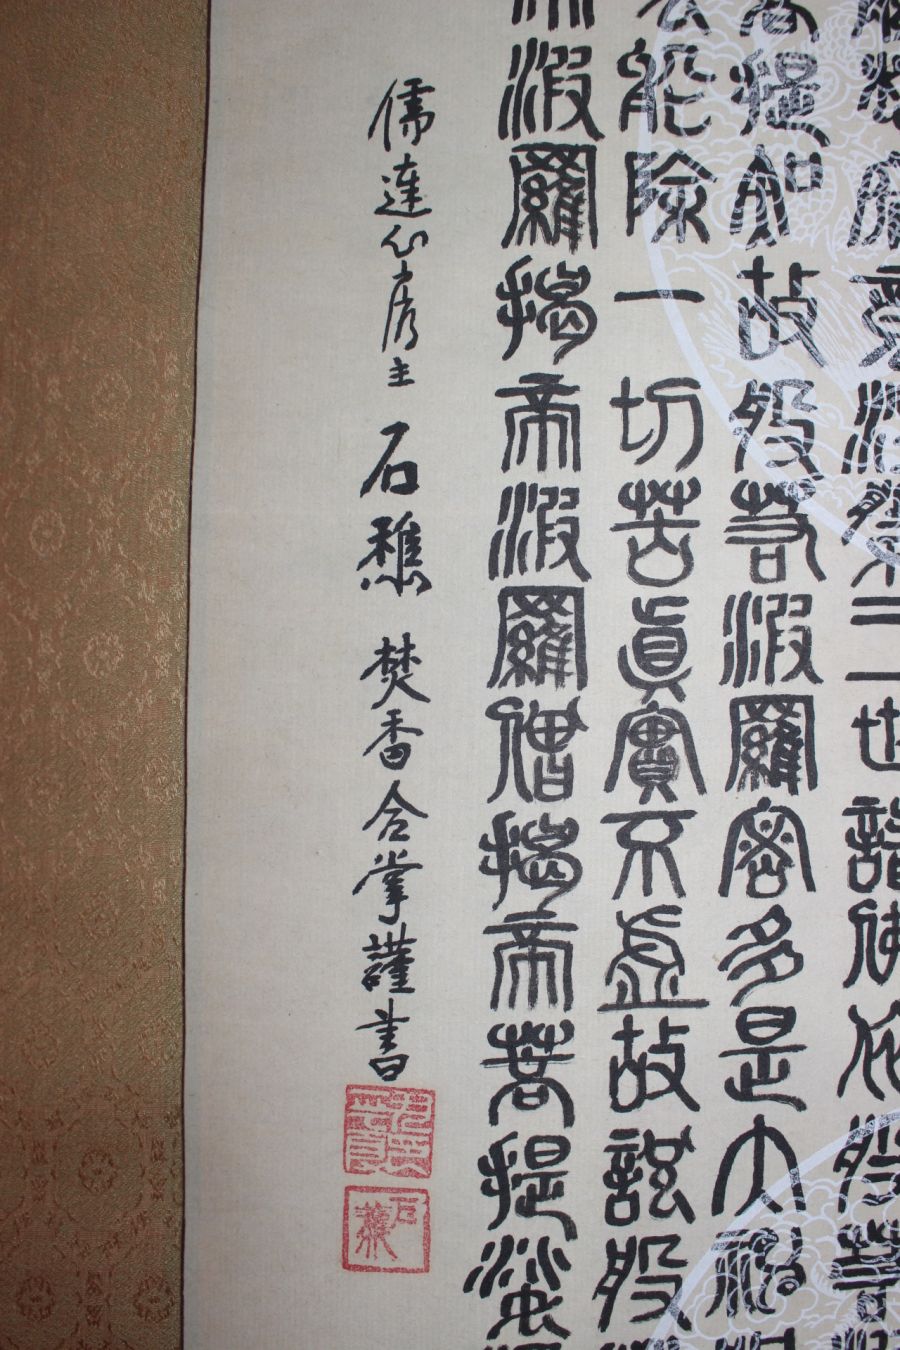 想究竟涅槃三世諸佛依般若
菩提知故般若波羅蜜多是大神
能除一切苦眞實不虛故說般
波羅揭帝波羅僧揭帝菩提
儒蓮心房主 石 焚香合掌謹書